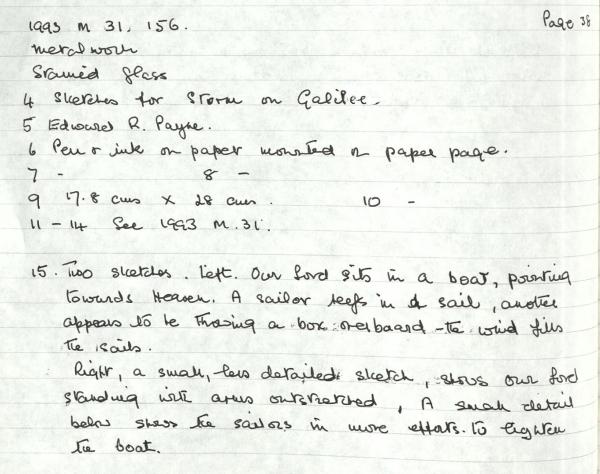 Page 38
1993 M 31, 156.
metalwork
Stained glass
4 Sketches for Storm on Galilee.
5 Edward R. Payne.
6 Pen & ink on paper mounted on paper page.
7 - 8 -
9 17.8 cms x 28 cms. 10 -
11 - 14 See 1993 M.31.
15. Two sketches. left. Our Lord sits in a boat, pointing
towards Heaven. A sailor reefs in a sail, another
appears to be throwing a box overboard - the wind fills
the sails.
Right, a small, less detailed sketch, shows our Lord
standing with arms outstretched, A small detail
below shows the sailors in more efforts to lighten
the boat.